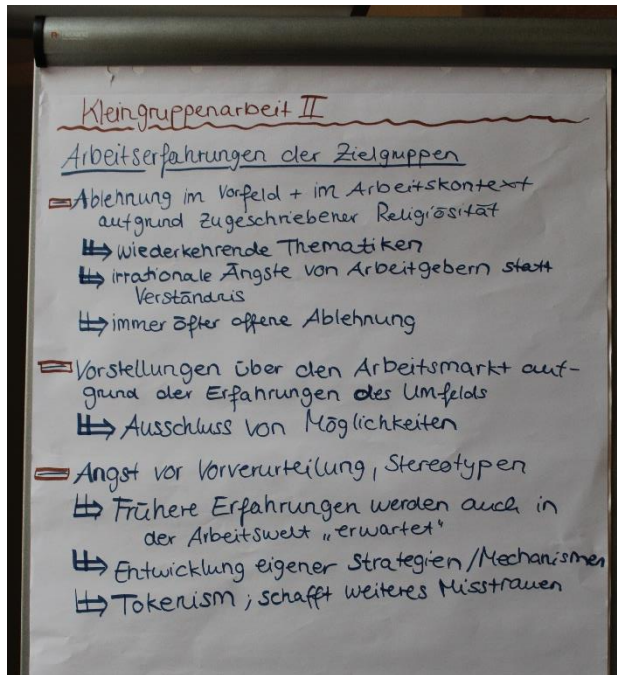 Kleingruppenarbeit II
Arbeitserfahrungen der Zielgruppen
Ablehnung im Vorfeld + im Arbeitskontext
aufgrund zugeschriebener Religiösität
wiederkehrende Thematiken
irrationale Ängste von Arbeitgebern statt
Verständnis
immer öfter offene Ablehnung
Vorstellungen über den Arbeitsmarkt auf-
grund der Erfahrungen des Umfelds
Ausschluss von Möglichkeiten
Angst vor Vorverurteilung, Stereotypen
Frühere Erfahrungen werden auch in
der Arbeitswelt „erwartet“
Entwicklung eigener Strategien/Mechanismen
Tokenism ; schafft weiteres Misstrauen